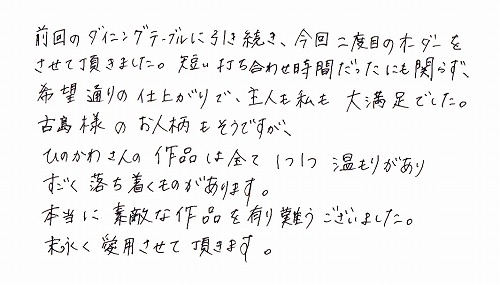 前回のダイニングテーブルに引き続き、今回二度目のオーダーを
させて頂きました。短い打ち合わせ時間だったにも関らず、
希望通りの仕上がりで、主人も私も大満足でした。
古島様のお人柄もそうですが、
ひのかわさんの作品は全て1つ1つ温もりがあり
すごく落ち着くものがあります。
本当に素敵な作品を有り難うございました。
末永く愛用させて頂きます。